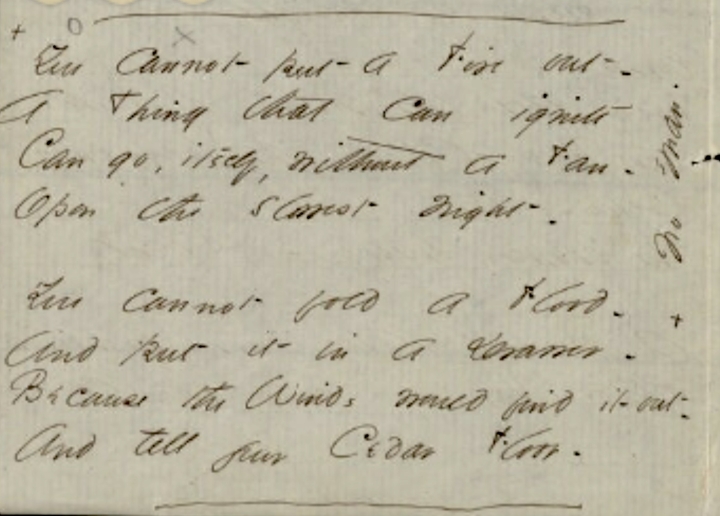 + O x
You cannot put a Fire out -
A Thing that can ignite
Can go, itself, without a Fan -
Upon the slowest night -
You cannot fold a Flood -
And put it in a Drawer -
Because the Winds would find it out -
And tell your Cedar Floor -
+ No man.